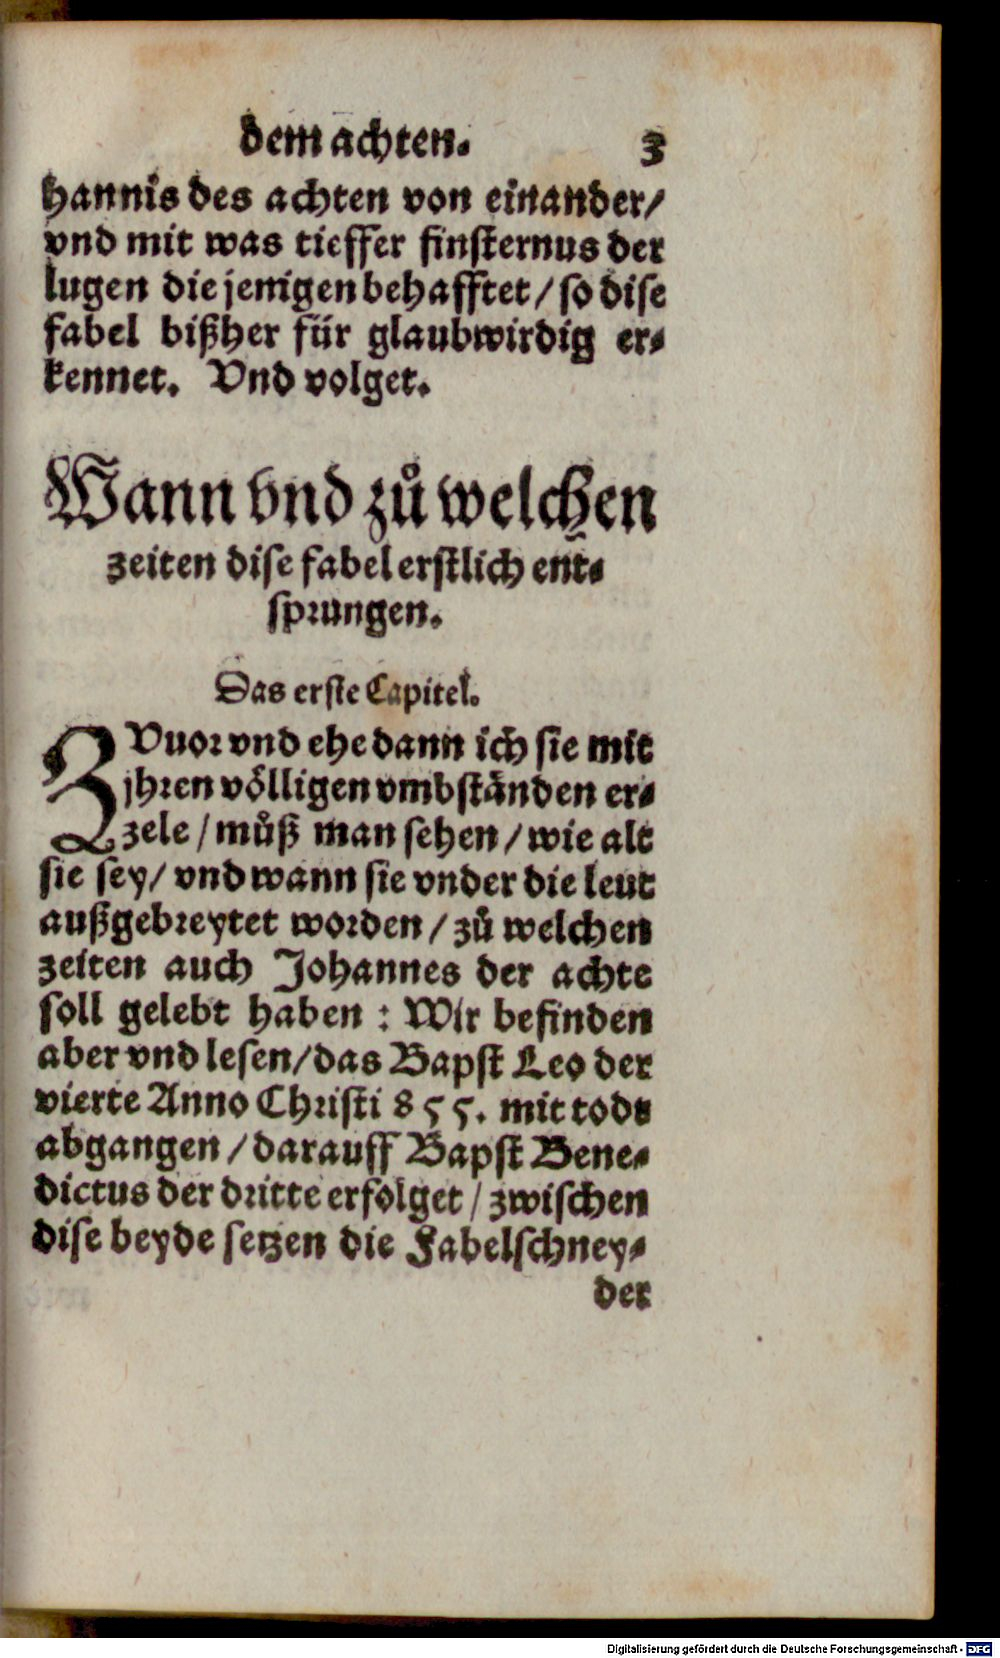 dem achten. 3
hannis des achten von einander/
vnd mit was tieffer finsternus der
lugen die jenigen behafftet / so dise
fabel bißher für glaubwirdig er-
kennet. Vnd volget.
Wann vnd zů welchen
zeiten dise fabel erstlich ent-
sprungen.
Das erste Capitel.
ZVuor vnd ehe dann ich sie mit
jhren völligen vmbständen er-
zele / můß man sehen / wie alt
sie sey / vnd wann sie vnder die leut
außgebreytet worden / zů welchen
zeiten auch Johannes der achte
soll gelebt haben : Wir befinden
aber vnd lesen/das Bapst Leo der
vierte Anno Christi 855. mit todt
abgangen / darauff Bapst Bene-
dictus der dritte erfolget / zwischen
dise beyde setzen die Fabelschney-
der
Digitalisierung gefördert durch die Deutsche Forschungsgemeinschaft - DFG